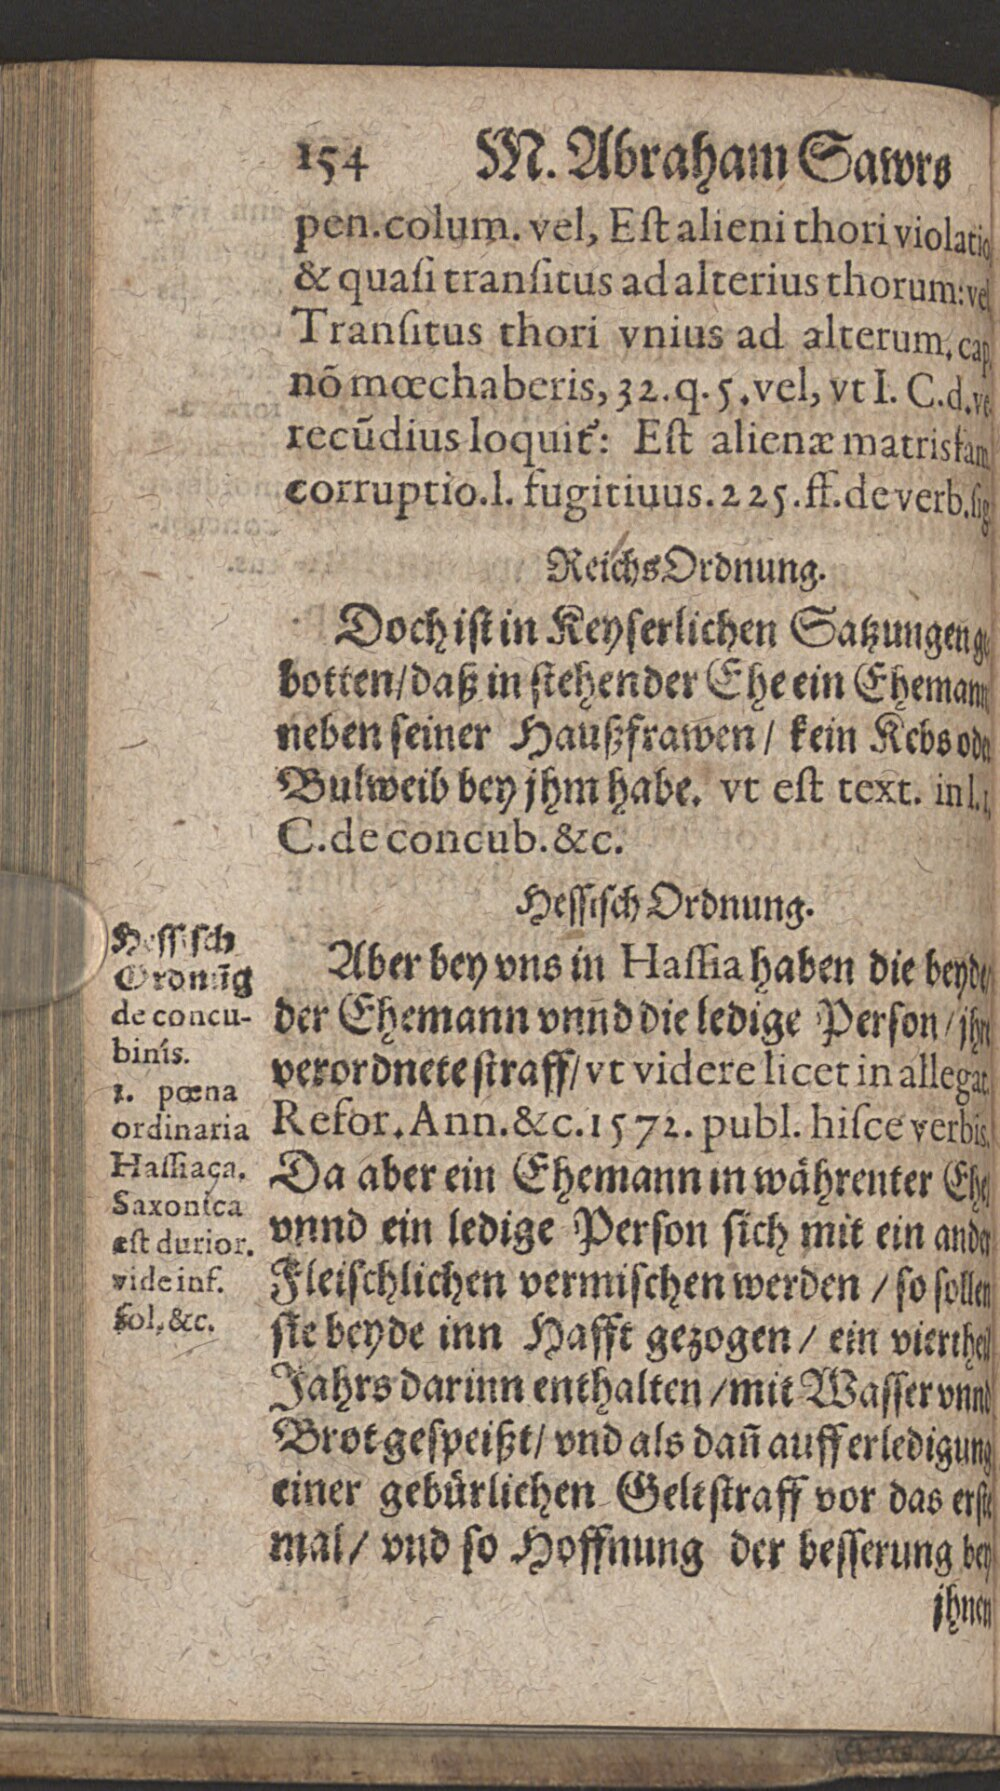 154 M. Abraham Sawrs
pen.colum. vel, Eſt alieni thori violatio
& quaſi tranſitus ad alterius thorum: vel
Tranſitus thori vnius ad alterum, cap.
nõ mœchaberis, 32.q.5. vel, vt I. C.d.
recũdius loquit: Eſt alienæ matrisfam.
corruptio.l. fugitiuus.225.ff.de verb.ſig
ReichsOrdnung.
Doch iſt in Keyſerlichen Satzungen ge
botten/daß in ſtehender Ehe ein Ehemann
neben ſeiner Haußfrawen/ kein Kebs oder
Bulweib bey jhm habe. vt eſt text. in l.1.
C.de concub.&c.
Heſſiſch Ordnung.
Heſſiſch
Ordnũg
de concu-
binis.
1. pœna
ordinaria
Haſſiaca.
Saxonica
eſt durior.
vide inf.
fol.&c.
Aber bey vns in Haſſia haben die beyde/
der Ehemann vnnd die ledige Perſon/jhre
verordnete ſtraff/vt videre licet in allegat.
Refor.Ann.&c.1572. publ. hiſce verbis.
Da aber ein Ehemann in währenter Ehe/
vnnd ein ledige Perſon ſich mit ein ander
Fleiſchlichen vermiſchen werden/ſo ſollen
ſie beyde inn Hafft gezogen/ ein viertheil
Jahrs darinn enthalten/mit Waſſer vnnd
Brot geſpeißt/ vnd als dañ auff erledigung
einer gebürlichen Geltſtraff vor das erſte
mal/ vnd ſo Hoffnung der beſſerung bey
jhnen